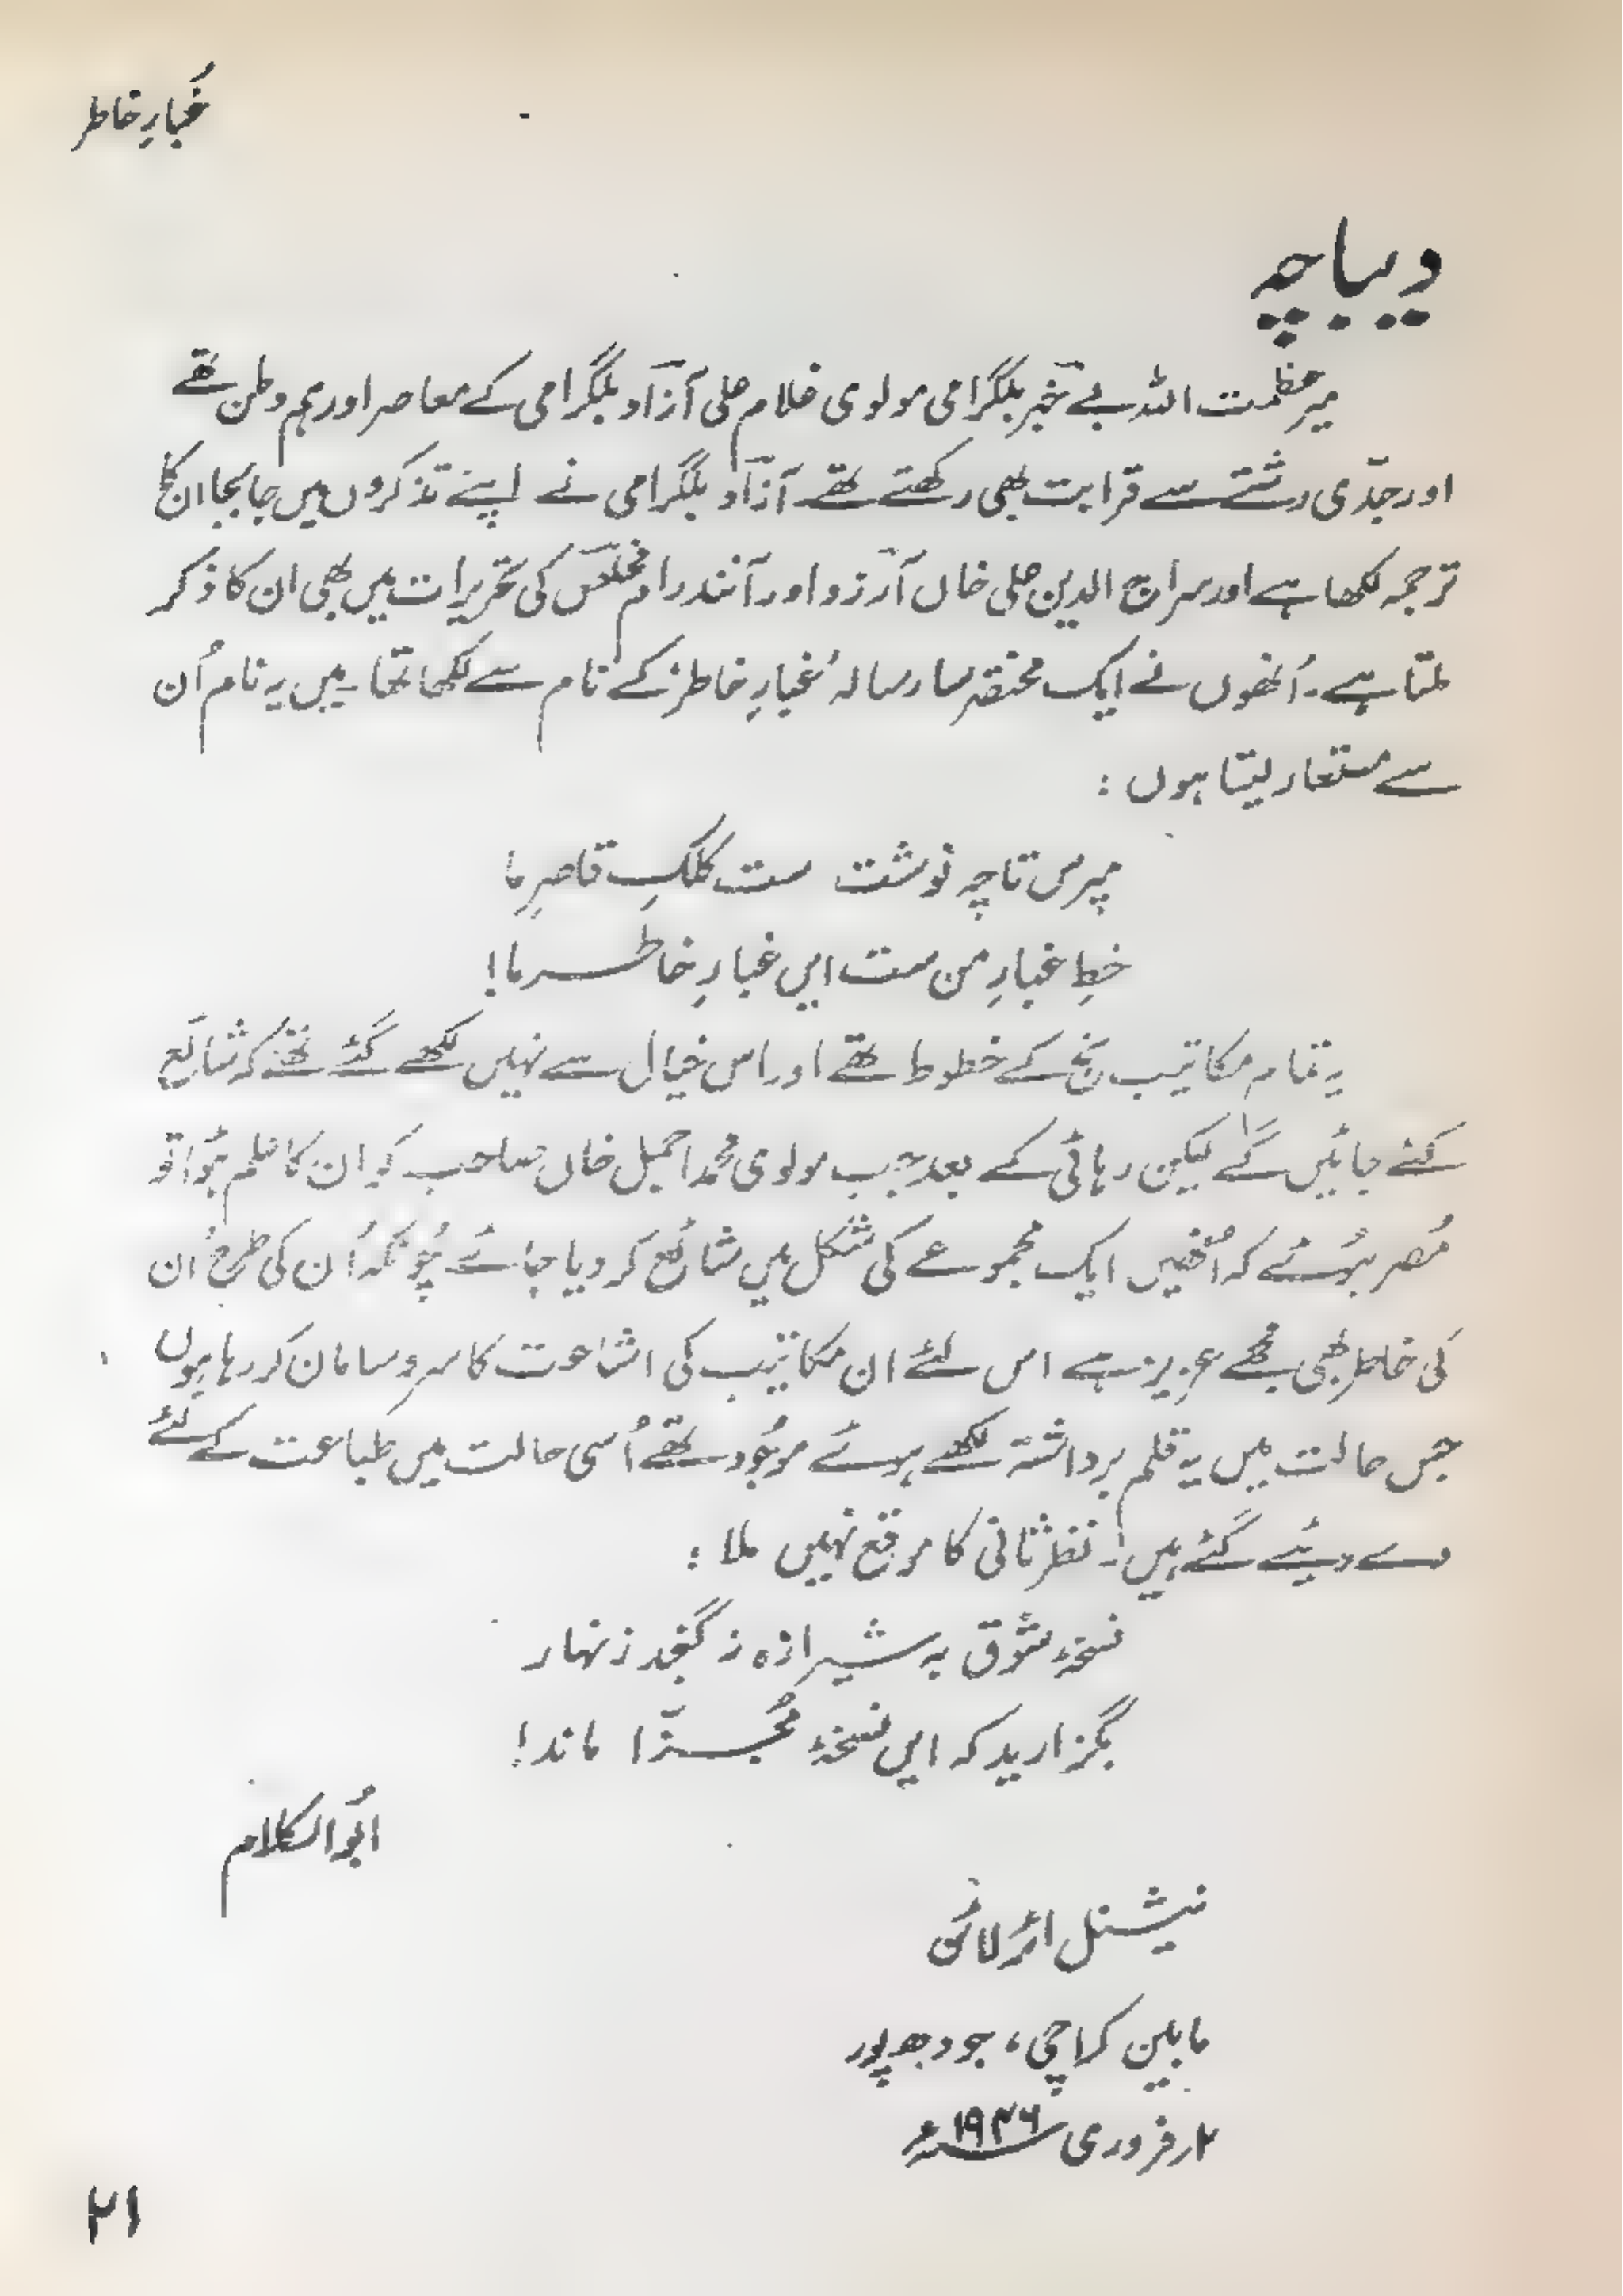 غُبارِ خاطر
دیباچہ
میر عظمت اللہ بے خبر بلگرامی مولوی غلام علی آزاد بلگرامی کے معاصر اور ہم وطن تھے
اور جدّی رشتے سے قرابت بھی رکھتے تھے۔ آزاد بلگرامی نے اپنے تذکروں میں جابجا ان کا
ترجمہ لکھا ہے اور سراج الدین علی خاں آرزو اور آنند رام مخلص کی تحریرات میں بھی ان کا ذکر
ملتا ہے۔ اُنھوں نے ایک مختصر سا رسالہ ’غبارِ خاطر‘ کے نام سے لکھا تھا۔ میں یہ نام اُن
سے مستعار لیتا ہوں :
مپرس تا چہ نوشت ست کلکِ قاصرِ ما
خطِ غبارِ من ست ایں غبارِ خاطرِ ما!
یہ تمام مکاتیب نج کے خطوط تھے اور اس خیال سے نہیں لکھے گئے تھے کہ شائع
کئے جائیں گے لیکن رہائی کے بعد جب مولوی محمد اجمل خاں صاحب کو ان کا علم ہُوا تو
مُصر ہُوئے کہ اُنھیں ایک مجموعے کی شکل میں شائع کر دیا جائے چُونکہ اُن کی طرح اُن
کی خاطر بھی مجھے عزیز ہے اس لئے ان مکاتیب کی اشاعت کا سر و سامان کر رہا ہوں
جس حالت میں یہ قلم برداشتہ لکھے ہوئے موجُود تھے اُسی حالت میں طباعت کے لئے
دے دیئے گئے ہیں۔ نظرثانی کا موقع نہیں ملا :
نسخۂ شوق بہ شیرازہ نہ گنجد زنہار
بگزارید کہ ایں نسخۂ مُجزّا ماند!
ابُوالکلام
نیشنل ائرلائن
مابین کراچی، جودھپور
۲؍ فروری ۱۹۴۶ء
۲۱